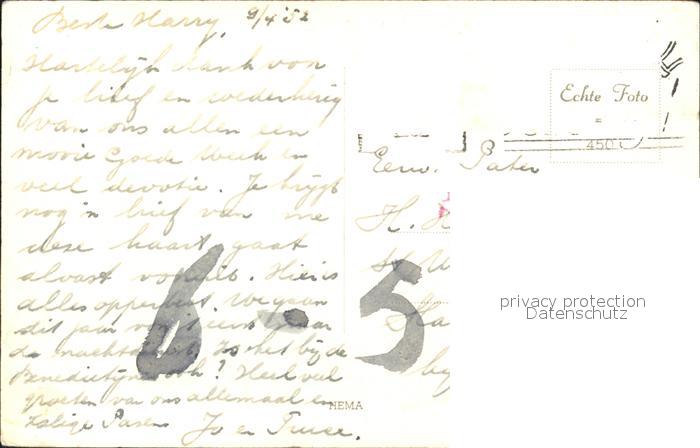 Beste Harry, 9/4 '52
Hartelijk dank voor
je brief en wederkerig
van ons allen een
mooie Goede Week en
veel devotie. Je krijgt
nog 'n brief van me
deze kaart gaat
alvast vooruit. Hier is
alles opperbest. We gaan
dit jaar voor 't eerst naar
de nachtmis. Is het bij de
Benedictijnen ook? Heel veel
groeten van ons allemaal en
Zalige Pasen Jo en Truce.
HEMA
Echte Foto
=
450
Eerw. Pater
H. H
St W
Ha
by
6 - 5
privacy protection
Datenschutz